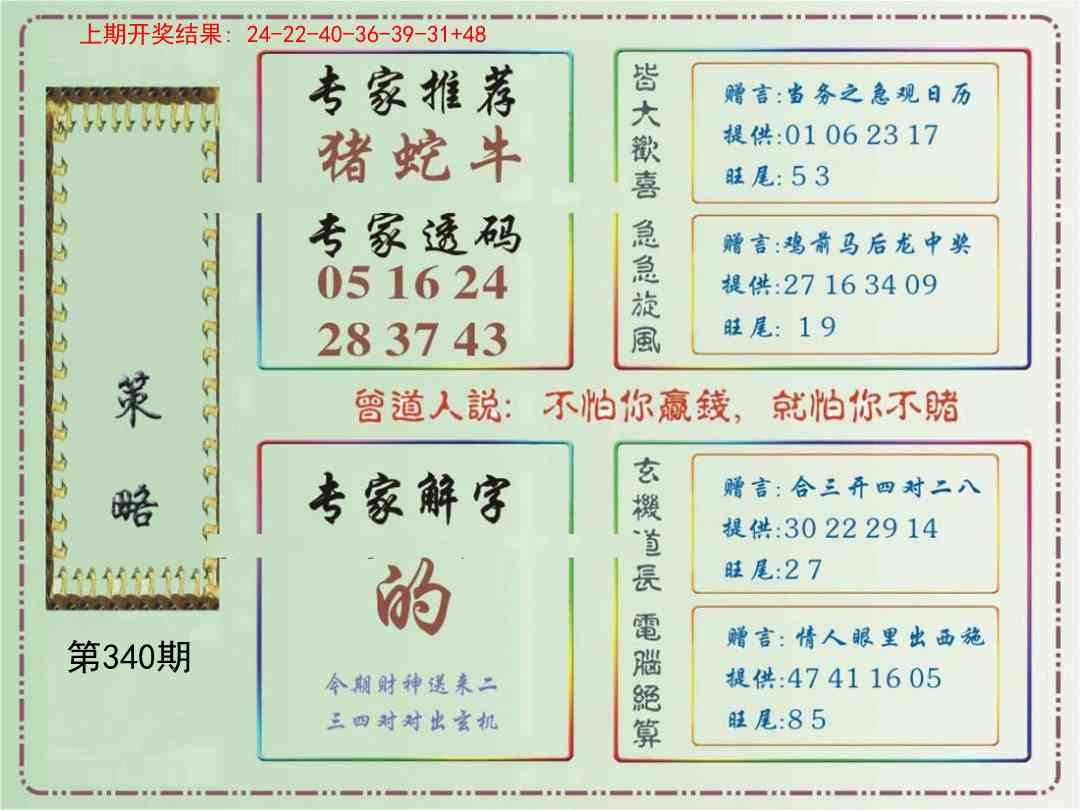 上期开奖结果: 24-22-40-36-39-31+48
专家推荐
猪蛇牛
专家透码
05 16 24
28 37 43
皆大歡喜
赠言:当务之急观日历
提供:01 06 23 17
旺尾: 5 3
急急旋風
赠言:鸡前马后龙中奖
提供:27 16 34 09
旺尾: 1 9
策略
第340期
曾道人説: 不怕你贏錢, 就怕你不賭
专家解字
的
今期财神送来二
三四对对出玄机
玄機道長
赠言: 合三开四对二八
提供:30 22 29 14
旺尾:2 7
電腦絕算
赠言: 情人眼里出西施
提供:47 41 16 05
旺尾:8 5